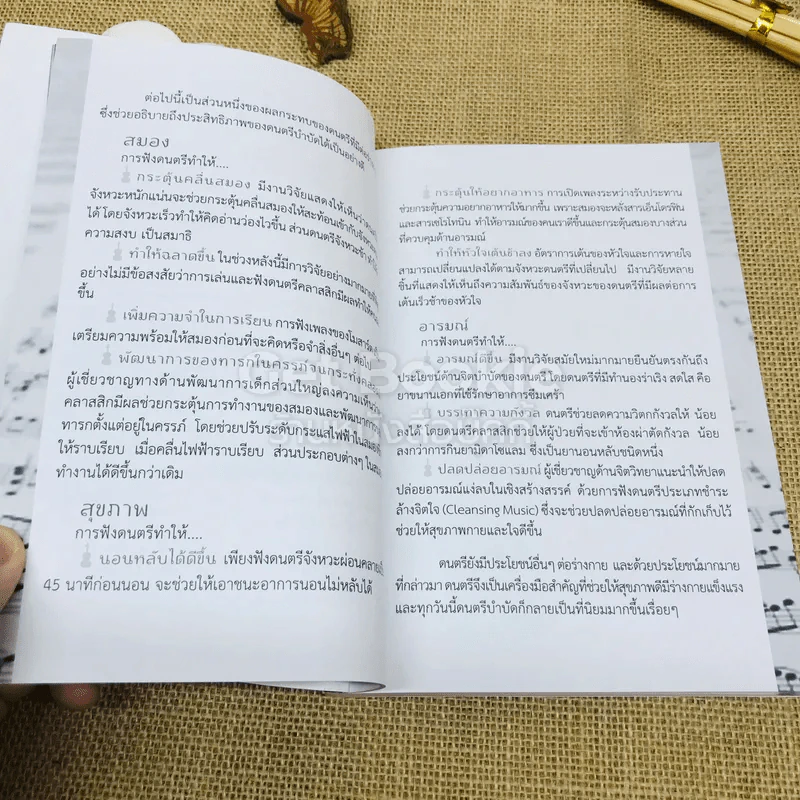 ต่อไปนี้เป็นส่วนหนึ่งของผลกระทบของดนตรีที่มีต่อ
ซึ่งช่วยอธิบายถึงประสิทธิภาพของดนตรีบำบัดได้เป็นอย่างดี
สมอง
การฟังดนตรีทำให้....
กระตุ้นคลื่นสมอง มีงานวิจัยแสดงให้เห็นว่า
จังหวะหนักแน่นจะช่วยกระตุ้นคลื่นสมองให้สะท้อนเข้ากับจังหวะ
ได้ โดยจังหวะเร็วทำให้คิดอ่านว่องไวขึ้น ส่วนดนตรีจังหวะช้า
ความสงบ เป็นสมาธิ
ทำให้ฉลาดขึ้น ในช่วงหลังนี้มีการวิจัยอย่างมากมาย
อย่างไม่มีข้อสงสัยว่าการเล่นและฟังดนตรีคลาสสิกมีผลทำให้
ขึ้น
เพิ่มความจำในการเรียน การฟังเพลงของโมสาร์ต
เตรียมความพร้อมให้สมองก่อนที่จะคิดหรือจำสิ่งอื่นๆ ต่อไป
พัฒนาการของทารกในครรภ์จนกระทั่งคลอด
ผู้เชี่ยวชาญทางด้านพัฒนาการเด็กส่วนใหญ่ลงความเห็น
คลาสสิกมีผลช่วยกระตุ้นการทำงานของสมองและพัฒนาการ
ทารกตั้งแต่อยู่ในครรภ์ โดยช่วยปรับระดับกระแสไฟฟ้าในสมอง
ให้ราบเรียบ เมื่อคลื่นไฟฟ้าราบเรียบ ส่วนประกอบต่างๆ ในสมอง
ทำงานได้ดีขึ้นกว่าเดิม
สุขภาพ
การฟังดนตรีทำให้....
นอนหลับได้ดีขึ้น เพียงฟังดนตรีจังหวะผ่อนคลาย
45 นาทีก่อนนอน จะช่วยให้เอาชนะอาการนอนไม่หลับได้
กระตุ้นให้อยากอาหาร การเปิดเพลงระหว่างรับประทาน
ช่วยกระตุ้นความอยากอาหารให้มากขึ้น เพราะสมองจะหลั่งสารเอ็นโดรฟิน
และสารเซโรโทนิน ทำให้อารมณ์ของคนเราดีขึ้นและกระตุ้นสมองบางส่วน
ที่ควบคุมด้านอารมณ์
ทำให้หัวใจเต้นช้าลง อัตราการเต้นของหัวใจและการหายใจ
สามารถเปลี่ยนแปลงได้ตามจังหวะดนตรีที่เปลี่ยนไป มีงานวิจัยหลาย
ชิ้นที่แสดงให้เห็นถึงความสัมพันธ์ของจังหวะของดนตรีที่มีผลต่อการ
เต้นเร็วช้าของหัวใจ
อารมณ์
การฟังดนตรีทำให้....
อารมณ์ดีขึ้น มีงานวิจัยสมัยใหม่มากมายยืนยันตรงกันถึง
ประโยชน์ด้านจิตบำบัดของดนตรีโดยดนตรีที่มีทำนองร่าเริง สดใส คือ
ยาขนานเอกที่ใช้รักษาอาการซึมเศร้า
บรรเทาความกังวล ดนตรีช่วยลดความวิตกกังวลให้ น้อย
ลงได้ โดยดนตรีคลาสสิกช่วยให้ผู้ป่วยที่จะเข้าห้องผ่าตัดกังวล น้อย
ลงกว่าการกินยามิดาโซแลม ซึ่งเป็นยานอนหลับชนิดหนึ่ง
ปลดปล่อยอารมณ์ ผู้เชี่ยวชาญด้านจิตวิทยาแนะนำให้ปลด
ปล่อยอารมณ์แง่ลบในเชิงสร้างสรรค์ ด้วยการฟังดนตรีประเภทชำระ
ล้างจิตใจ (Cleansing Music) ซึ่งจะช่วยปลดปล่อยอารมณ์ที่กักเก็บไว้
ช่วยให้สุขภาพกายและใจดีขึ้น
ดนตรียังมีประโยชน์อื่นๆ ต่อร่างกาย และด้วยประโยชน์มากมาย
ที่กล่าวมา ดนตรีจึงเป็นเครื่องมือสำคัญที่ช่วยให้สุขภาพดีมีร่างกายแข็งแรง
และทุกวันนี้ดนตรีบำบัดก็กลายเป็นที่นิยมมากขึ้นเรื่อยๆ